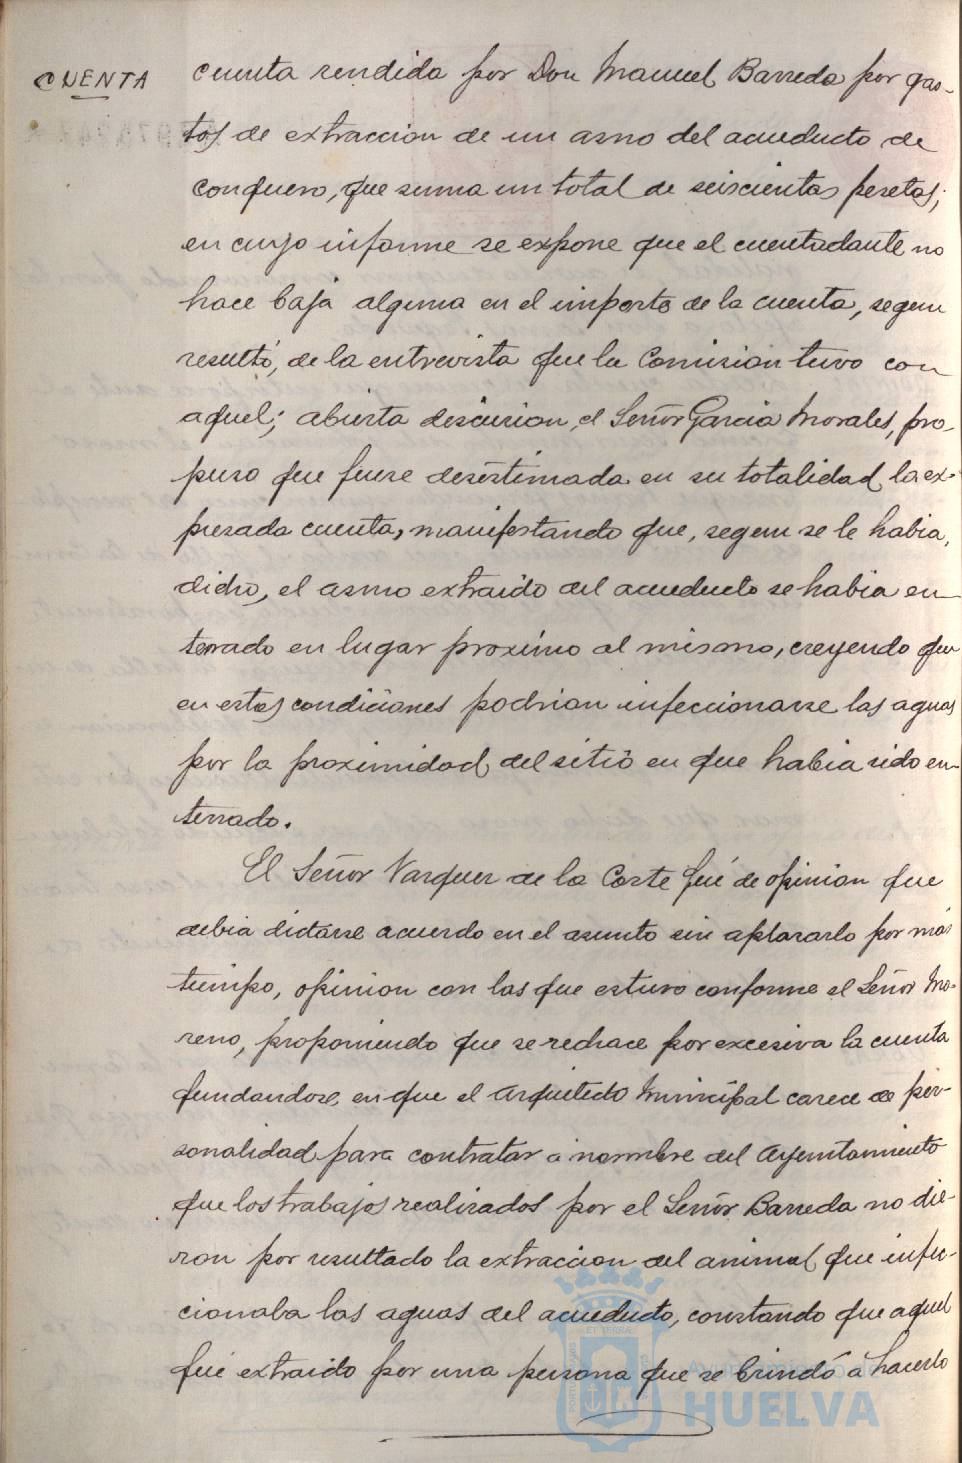 CUENTA
cuenta rendida por Don Manuel Barreda por gas-
tos de extraccion de un asno del acueducto de
conquero, que suma un total de seiscientas pesetas;
en cuyo informe se expone que el cuentadante no
hace baja alguna en el importe de la cuenta, segun
resultó, de la entrevista que la Comision tuvo con
aquel; abierta discusion, el Señor Garcia Morales, pro-
puso que fuese desestimada en su totalidad la ex-
presada cuenta, manifestando que, segun se le habia,
dicho, el asno extraido del acueducto se habia en-
terrado en lugar proximo al mismo, creyendo que
en estas condiciones podrian infeccionarse las aguas
por la proximidad del sitio en que habia sido en-
terrado.
El Señor Vazquez de la Corte fué de opinion que
debia dictarse acuerdo en el asunto sin aplazarlo por más
tiempo, opinion con las que estuvo conforme el Señor Mo-
reno, proponiendo que se rechace por excesiva la cuenta
fundandose en que el Arquitecto Municipal carece de per-
sonalidad para contratar á nombre del Ayuntamiento
que los trabajos realizados por el Señor Barreda no die-
ron por resultado la extraccion del animal que infec-
cionaba las aguas del acueducto, constando que aquel
fué extraido por una persona que se brindó á hacerlo
Ayuntamiento de
HUELVA